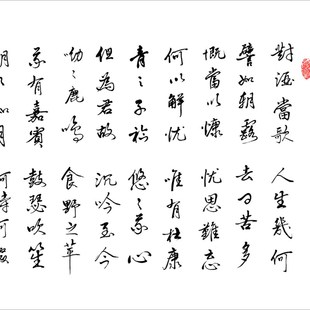 對酒當歌人生幾何
譬如朝露去日苦多
慨當以慷忧思難忘
何以解忧唯有杜康
青々子衿悠々我心
但為君故沉吟至今
呦々鹿鳴食野之苹
我有嘉賓鼓瑟吹笙
明々如月何時可掇